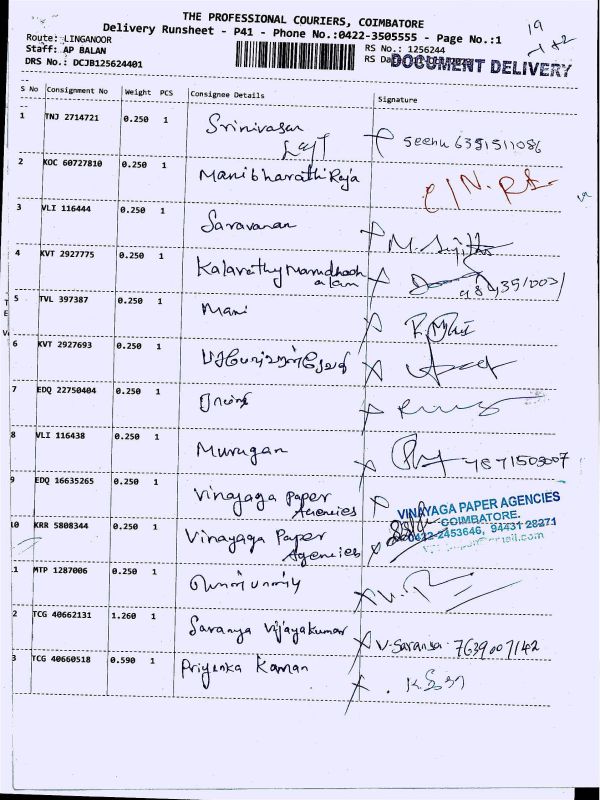 THE PROFESSIONAL COURIERS, COIMBATORE
Delivery Runsheet - P41 - Phone No.:0422-3505555 - Page No.:1
19
Route: LINGANOOR
RS No.: 1256244
Staff: AP BALAN
RS Da
DOCUMENT DELIVERY
DRS No.: DCJB125624401
S No Consignment No Weight PCS Consignee Details Signature
1 TNJ 2714721 0.250 1 Srinivasan seenu 6351511086
2 KOC 60727810 0.250 1 Manibharathi Raja
3 VLI 116444 0.250 1 Saravanan
4 KVT 2927775 0.250 1
5 TVL 397387 0.250 1 Mani
6 KVT 2927693 0.250 1
7 EDQ 22750404 0.250 1
8 VLI 116438 0.250 1 Murugan
9 EDQ 16635265 0.250 1 Vinayaga Paper
Agencies
VINAYAGA PAPER AGENCIES
COIMBATORE.
0422-2453646, 94431 28271
10 KRR 5808344 0.250 1 Vinayaga Paper
Agencies
1 MTP 1287006 0.250 1
2 TCG 40662131 1.260 1 Saranya Vijayakumar V-Saranya. 7639007142
3 TCG 40660518 0.590 1 Priyenka Kannan